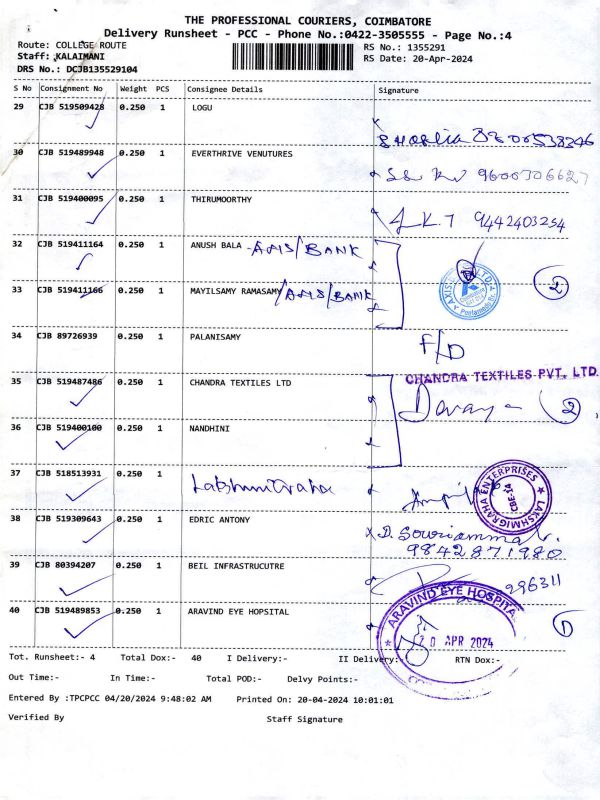 THE PROFESSIONAL COURIERS, COIMBATORE
Delivery Runsheet - PCC - Phone No.:0422-3505555 - Page No.:4
Route: COLLEGE ROUTE
RS No.: 1355291
Staff: KALAIMANI
RS Date: 20-Apr-2024
DRS No.: DCJB135529104
S No Consignment No Weight PCS Consignee Details Signature
29 CJB 519509428 0.250 1 LOGU
30 CJB 519489948 0.250 1 EVERTHRIVE VENUTURES 9600306627
31 CJB 519400095 0.250 1 THIRUMOORTHY 9442403254
32 CJB 519411164 0.250 1 ANUSH BALA - AXIS/BANK
33 CJB 519411166 0.250 1 MAYILSAMY RAMASAMY/AXIS/BANK 2
34 CJB 89726939 0.250 1 PALANISAMY F/D
CHANDRA TEXTILES PVT. LTD
35 CJB 519487486 0.250 1 CHANDRA TEXTILES LTD 2
36 CJB 519400100 0.250 1 NANDHINI
37 CJB 518513931 0.250 1 Lakshmi Graha
LAKSHMIGRAHA ENTERPRISES CBE-14
38 CJB 519309643 0.250 1 EDRIC ANTONY D. Souriammal
9842871980
39 CJB 80394207 0.250 1 BEIL INFRASTRUCUTRE 296311
40 CJB 519489853 0.250 1 ARAVIND EYE HOPSITAL 1
ARAVIND EYE HOSPITAL
20 APR 2024
Tot. Runsheet:- 4 Total Dox:- 40 I Delivery:- II Delivery:- RTN Dox:-
Out Time:- In Time:- Total POD:- Delvy Points:-
Entered By :TPCPCC 04/20/2024 9:48:02 AM Printed On: 20-04-2024 10:01:01
Verified By Staff Signature